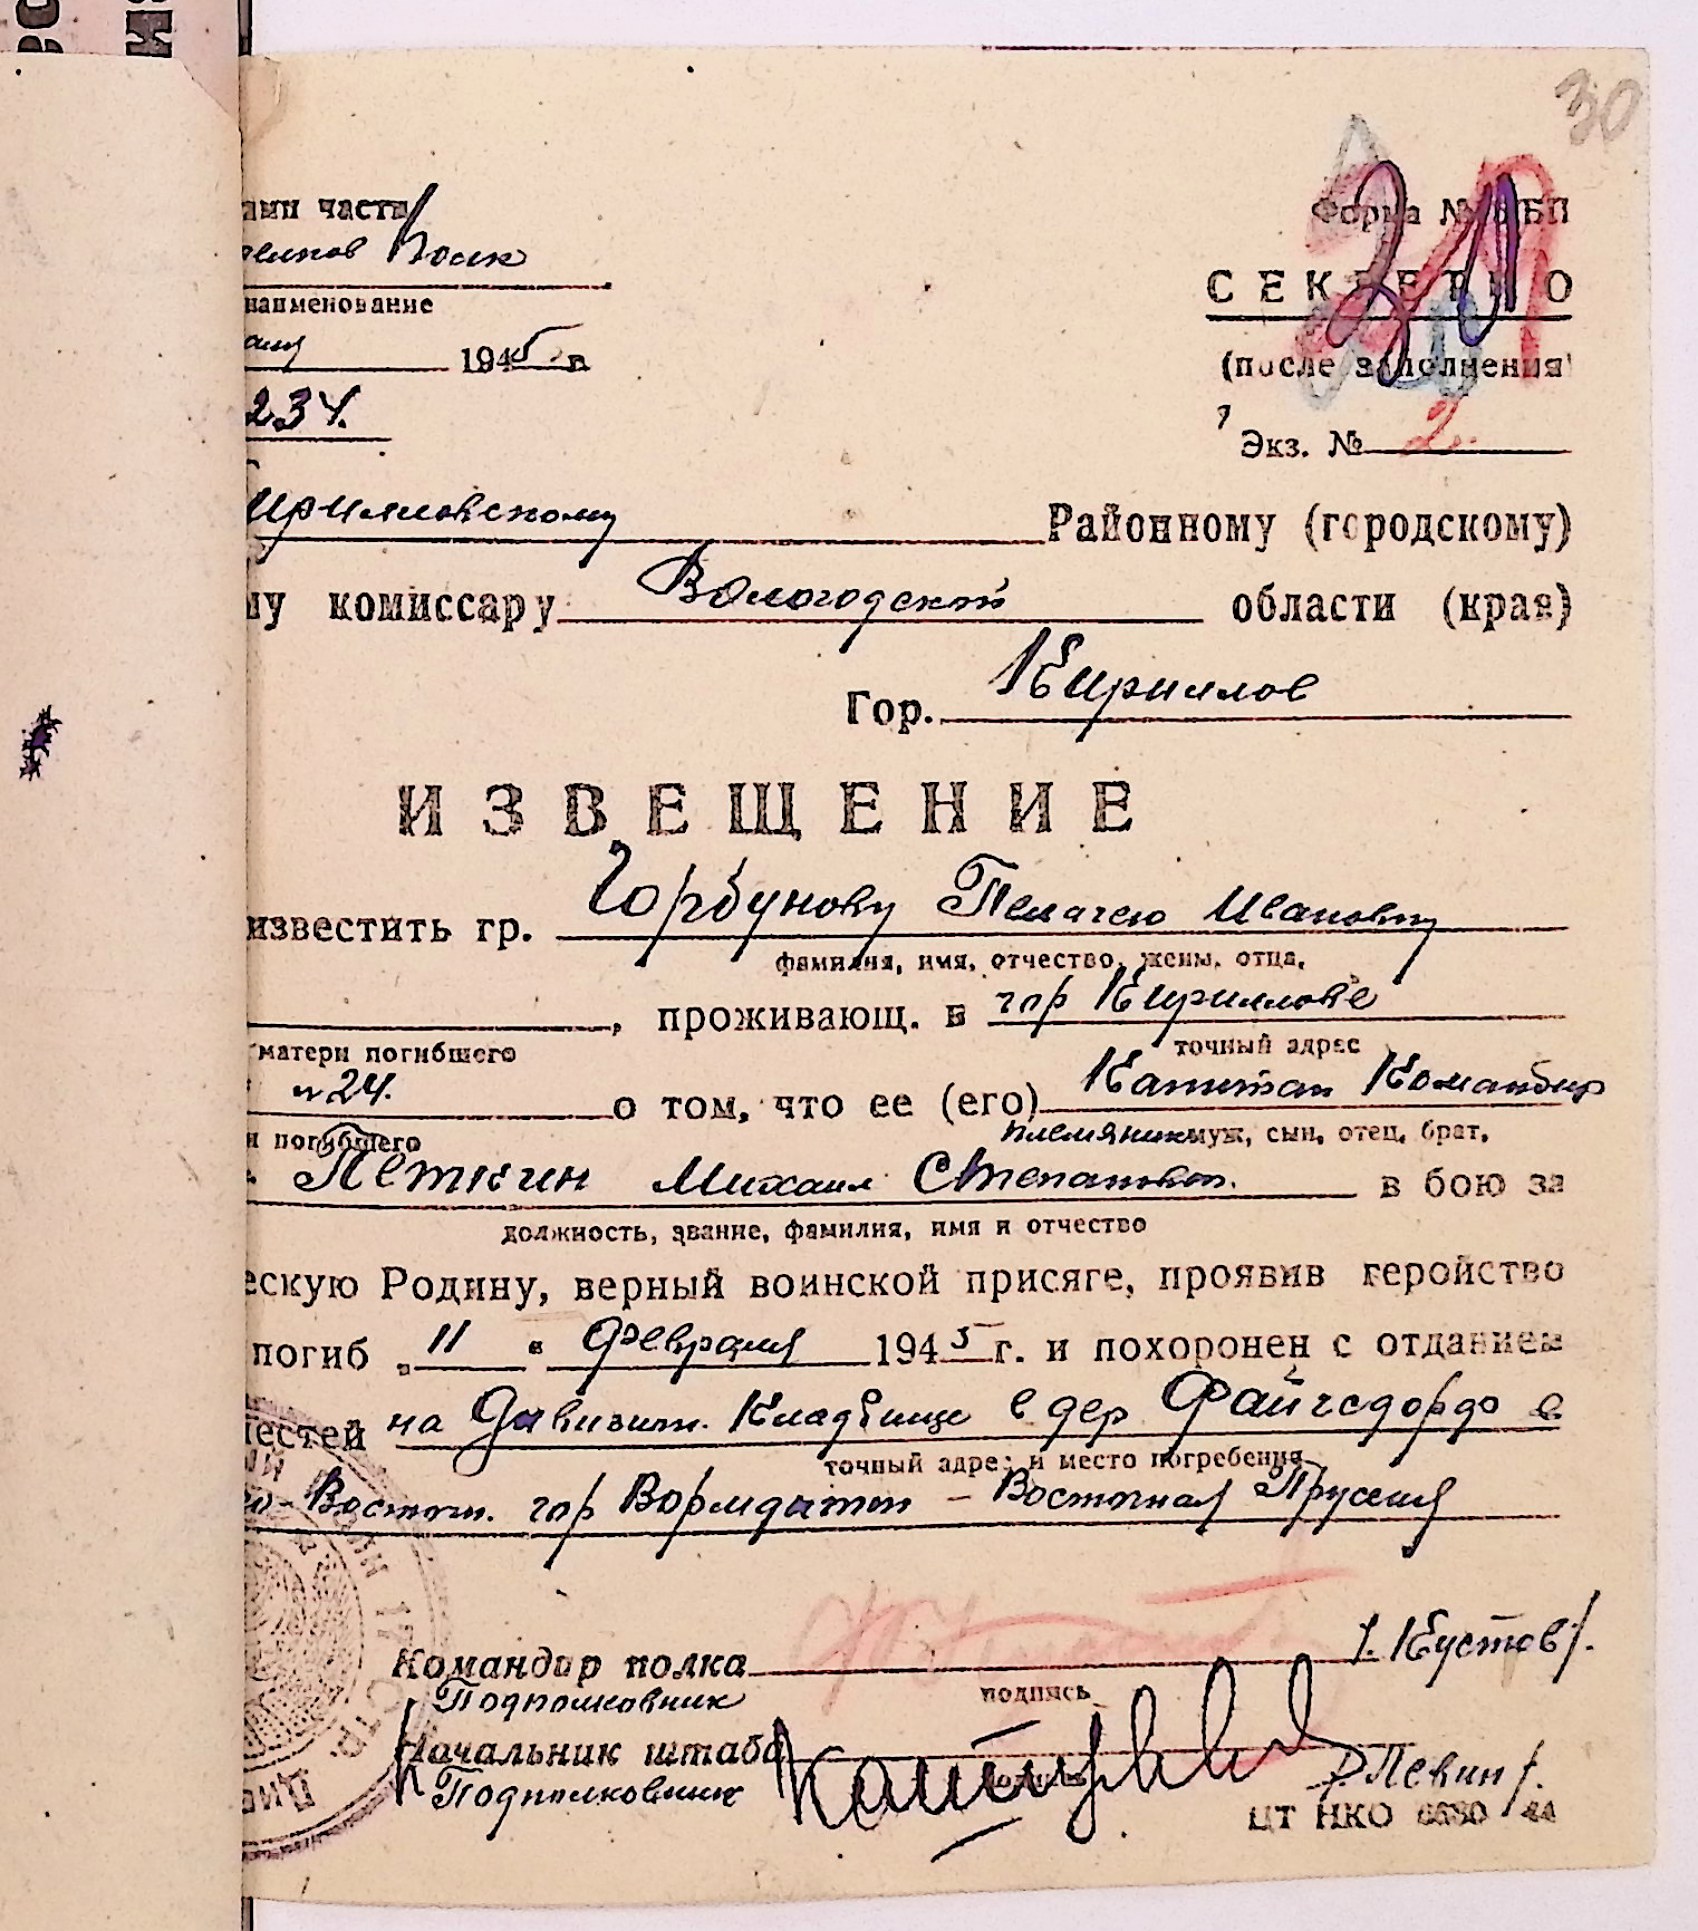 30
ами части
Форма № БП
Полк
СЕКРЕТНО
наименование
1945 г
(после заполнения)
234.
Экз. № 2.
Кирилловскому Районному (городскому)
му комиссару Вологодской области (края)
Гор. Кириллов
ИЗВЕЩЕНИЕ
известить гр. Горбунову Пелагею Ивановну
фамилия, имя, отчество, жены, отца,
, проживающ. в гор Кириллове
матери погибшего точный адрес
№24. о том, что ее (его) Капитан Командир
и погибшего племянник муж, сын, отец, брат,
Петкин Михаил Степанович. в бою за
должность, звание, фамилия, имя и отчество
ескую Родину, верный воинской присяге, проявив геройство
погиб „11" февраля 1945 г. и похоронен с отданием
честей на Дивизион. Кладбище в дер Файгсдорф в
точный адрес и место погребения
го-Восточн. гор Вормдитт - Восточная Пруссия
Командир полка /. Кустов/.
Подполковник подпись
Начальник штаба /.Левин/.
Подполковник
ЦТ НКО 6680 44